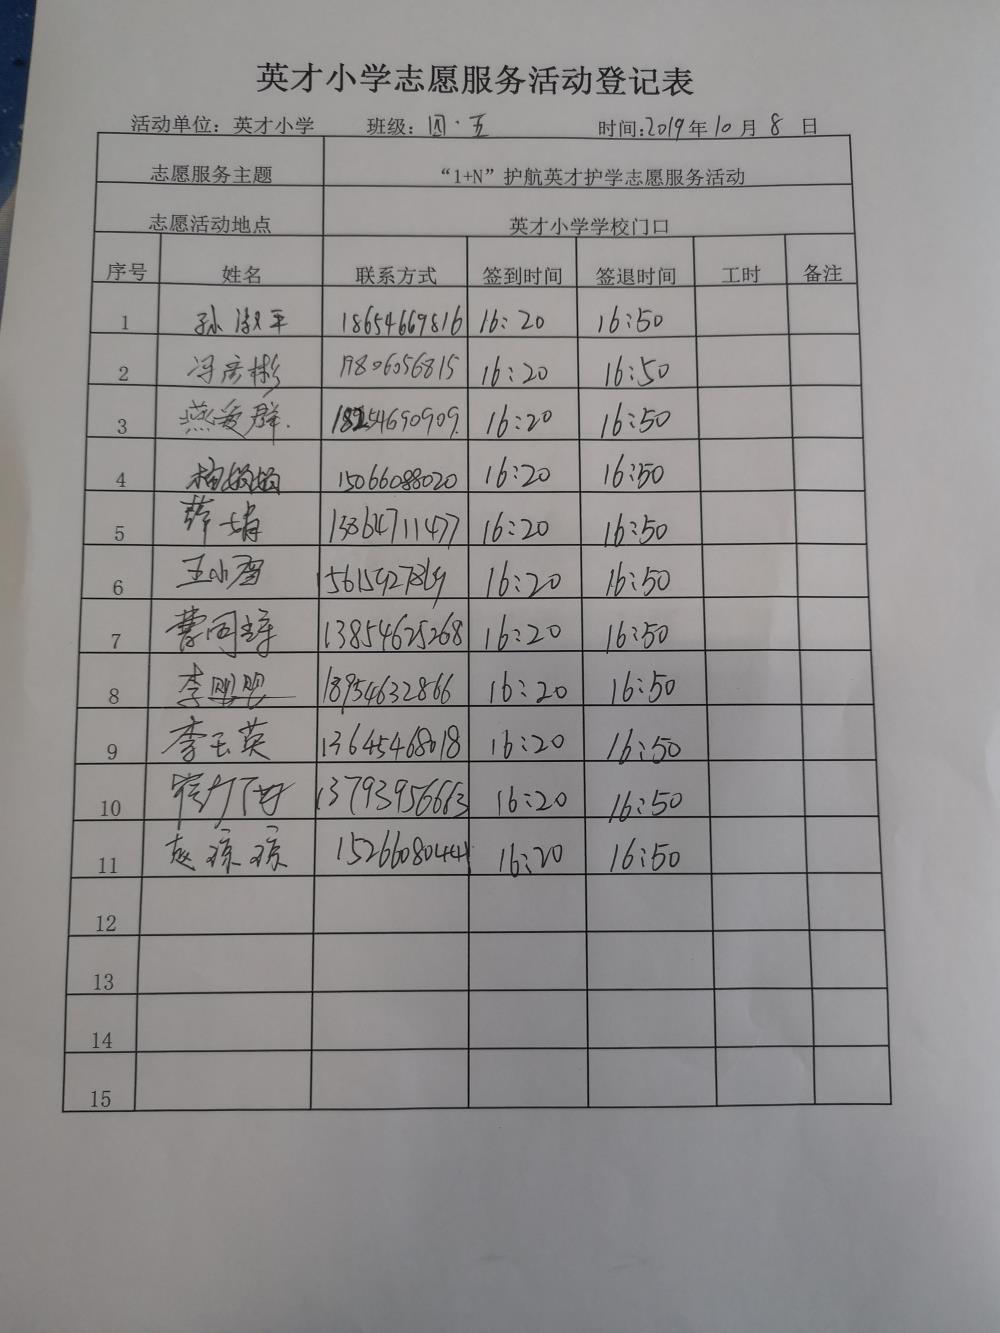 英才小学志愿服务活动登记表
活动单位：英才小学 班级：四·五 时间:2019年10月8日
志愿服务主题 “1+N”护航英才护学志愿服务活动
志愿活动地点 英才小学学校门口
序号 姓名 联系方式 签到时间 签退时间 工时 备注
1 孙淑平 18654669816 16:20 16:50
2 冯彦彬 17806056815 16:20 16:50
3 燕爱群. 18254690909. 16:20 16:50
4 15066088020 16:20 16:50
5 薛娟 13864711477 16:20 16:50
6 王小雪 16:20 16:50
7 曹同璋 13854625268 16:20 16:50
8 李盟盟 18954632866 16:20 16:50
9 李玉英 13645468018 16:20 16:50
10 13793956663 16:20 16:50
11 赵琼琼 15266080444 16:20 16:50
12
13
14
15